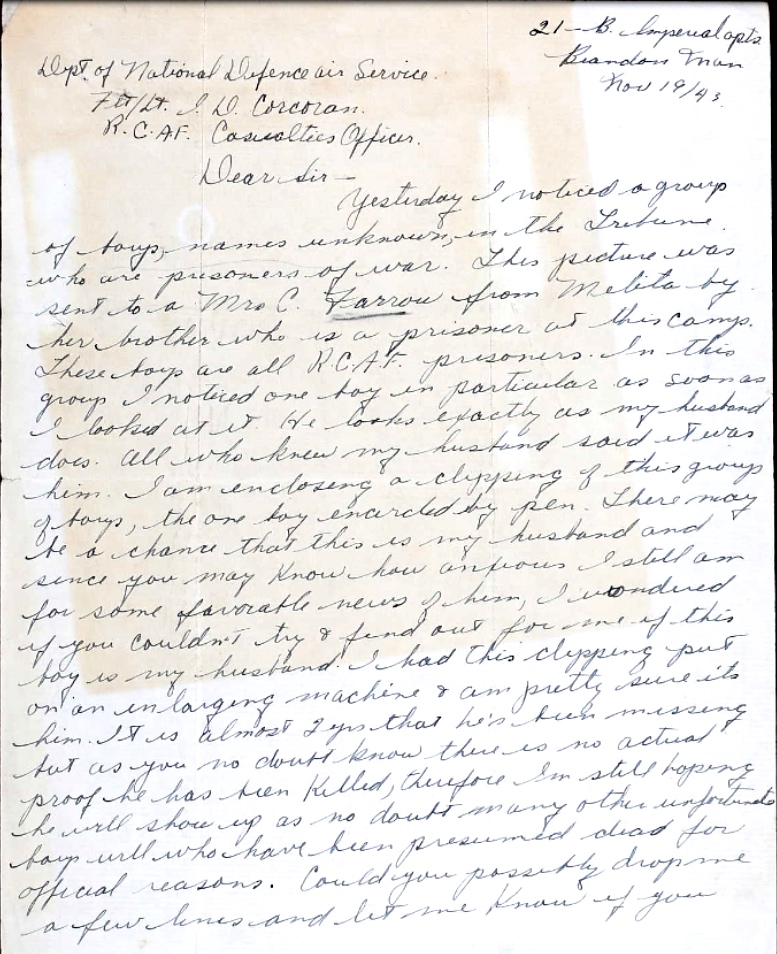 21-B. Imperial apts.
Brandon Man
Nov 19/43.
Dept. of National Defence air Service.
Flt/Lt. I. D. Corcoran.
R.C.A.F. Casualties Officer.
Dear Sir -
Yesterday I noticed a group
of boys, names unknown, in the Tribune.
who are prisoners of war. This picture was
sent to a Mrs C. Farrow from Melita by
her brother who is a prisoner at this camp.
These boys are all R.C.A.F. prisoners. In this
group I noticed one boy in particular as soon as
I looked at it. He looks exactly as my husband
does. All who knew my husband said it was
him. I am enclosing a clipping of this group
of boys, the one boy encircled by pen. There may
be a chance that this is my husband and
since you may know how anxious I still am
for some favorable news of him, I wondered
if you couldn't try & find out for me if this
boy is my husband. I had this clipping put
on an enlarging machine & am pretty sure its
him. It is almost 2 yrs that he's been missing
but as you no doubt know there is no actual
proof he has been killed, therefore I'm still hoping
he will show up as no doubt many other unfortunate
boys will who have been presumed dead for
official reasons. Could you possibly drop me
a few lines and let me know if you